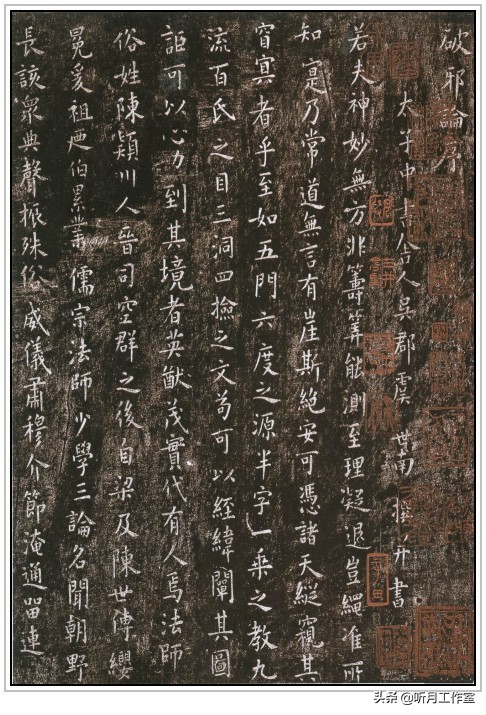 破邪論序
太子中書舍人吳郡虞世南撰并書
若夫神妙無方非籌筭能測至理凝邈豈繩准所
知寔乃常道無言有崖斯絕安可憑諸天縱窺其
窅寞者乎至如五門六度之源半字一乘之教九
流百氏之目三洞四撿之文苟可以經緯闡其圖
詎可以心力到其境者英猷茂實代有人焉法師
俗姓陳潁川人晉司空群之後自梁及陳世傳纓
冕爰祖及伯累業儒宗法師少學三論名聞朝野
長該衆典聲振殊俗威儀肅穆介節淹通留連
头条 @听月工作室